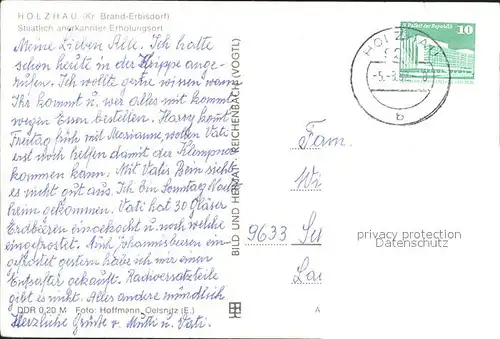 HOLZHAU (Kr. Brand-Erbisdorf)
Staatlich anerkannter Erholungsort
Meine Lieben Alle. Ich hatte
schon heute in der Krippe ange-
rufen. Ich wollte gerne wissen wann
Ihr kommt u. wer alles mit kommt
wegen Essen bestellen. Harry kommt
Freitag früh mit Marianne, wollen Vati
erst noch helfen damit der Klempner
kommen kann. Mit Vatis Bein sieht
es nicht gut aus. Ich bin Sonntag Nach
heim gekommen. Vati hat 30 Gläser
Erdbeeren eingekocht u. noch welche
eingefrostet. Auch Johannisbeeren ein-
gefrostet gestern habe ich mir einen
Entsafter gekauft. Radioersatzteile
gibt es nicht. Alles andere mündlich
Herzliche Grüße v. Mutti u. Vati.
DDR 0,20 M Foto: Hoffmann, Oelsnitz (E.)
BILD UND HEIMAT REICHENBACH (VOGTL)
HOLZHAU
b
Palast der Republik
10
Fam.
Wi
9633
A
privacy protection
Datenschutz